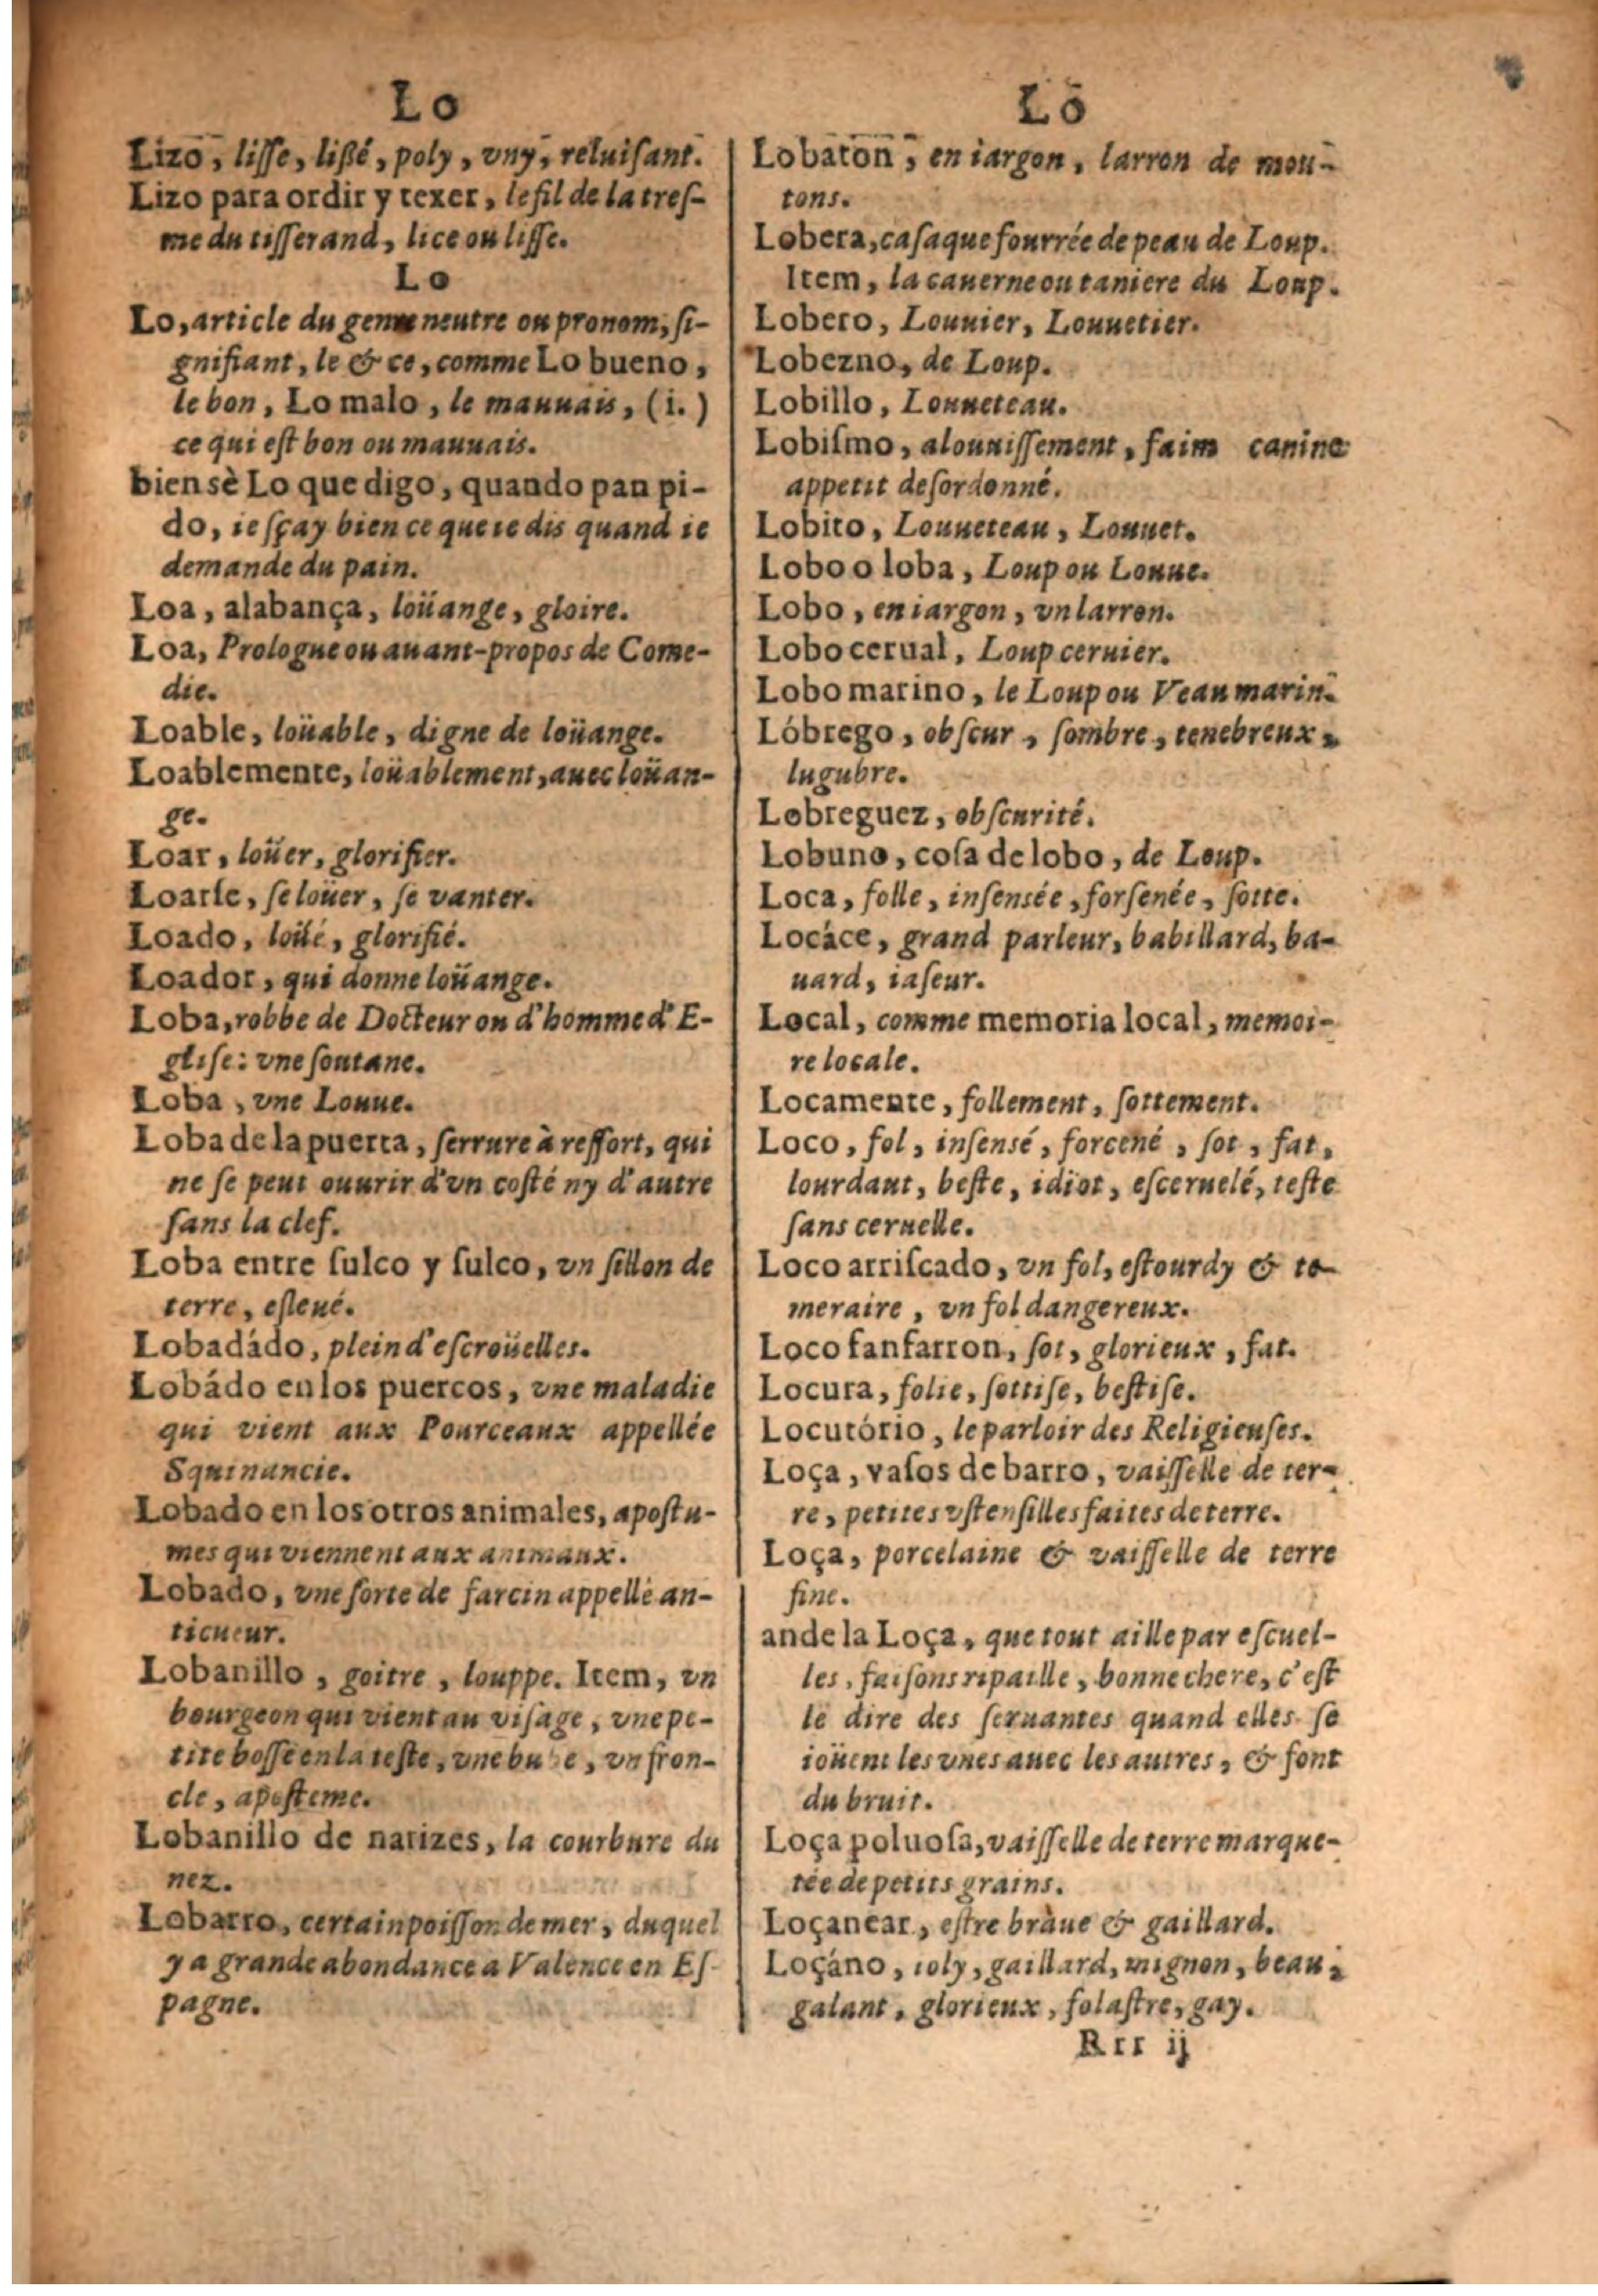 Lo
Lizo, liſſe, liſſé, poly, vny, reluiſant.
Lizo para ordir y texer, le fil de la treſ-
me du tiſſerand, lice ou liſſe.
Lo
Lo, article du genre neutre ou pronom, ſi-
gnifiant, le & ce, comme Lo bueno,
le bon, Lo malo, le mauuais, (i.)
ce qui eſt bon ou mauuais.
bien sè Lo que digo, quando pan pi-
do, ie ſçay bien ce que ie dis quand ie
demande du pain.
Loa, alabança, loüange, gloire.
Loa, Prologue ou auant-propos de Come-
die.
Loable, loüable, digne de loüange.
Loablemente, loüablement, auec loüan-
ge.
Loar, loüer, glorifier.
Loarſe, ſe loüer, ſe vanter.
Loado, loüé, glorifié.
Loador, qui donne loüange.
Loba, robbe de Docteur ou d'homme d'E-
gliſe: vne ſoutane.
Loba, vne Louue.
Loba de la puerta, ſerrure à reſſort, qui
ne ſe peut ouurir d'vn coſté ny d'autre
ſans la clef.
Loba entre ſulco y ſulco, vn ſillon de
terre, eſleué.
Lobadádo, plein d'eſcroüelles.
Lobádo en los puercos, vne maladie
qui vient aux Pourceaux appellée
Squinancie.
Lobado en los otros animales, apoſtu-
mes qui viennent aux animaux.
Lobado, vne ſorte de farcin appellé an-
ticueur.
Lobanillo, goitre, louppe. Item, vn
bourgeon qui vient au viſage, vne pe-
tite boſſe en la teſte, vne bube, vn fron-
cle, apoſteme.
Lobanillo de narizes, la courbure du
nez.
Lobarro, certain poiſſon de mer, duquel
y a grande abondance a Valence en Eſ-
pagne.
Lo
Lobaton, en iargon, larron de mou-
tons.
Lobera, caſaque fourrée de peau de Loup.
Item, la cauerne ou taniere du Loup.
Lobero, Louuier, Louuetier.
Lobezno, de Loup.
Lobillo, Louueteau.
Lobiſmo, alouuiſſement, faim canine
appetit deſordonné.
Lobito, Louueteau, Louuet.
Lobo o loba, Loup ou Louue.
Lobo, en iargon, vn larron.
Lobo cerual, Loup ceruier.
Lobo marino, le Loup ou Veau marin.
Lóbrego, obſcur, ſombre, tenebreux,
lugubre.
Lobreguez, obſcurité.
Lobuno, coſa de lobo, de Loup.
Loca, folle, inſensée, forſenée, ſotte.
Locáce, grand parleur, babillard, ba-
uard, iaſeur.
Local, comme memoria local, memoi-
re locale.
Locamente, follement, ſottement.
Loco, fol, inſensé, forcené, ſot, fat,
lourdaut, beſte, idiot, eſceruelé, teſte
ſans ceruelle.
Loco arriſcado, vn fol, eſtourdy & te-
meraire, vn fol dangereux.
Loco fanfarron, ſot, glorieux, fat.
Locura, folie, ſottiſe, beſtiſe.
Locutório, le parloir des Religieuſes.
Loça, vaſos de barro, vaiſſelle de ter-
re, petites vſtenſilles faites de terre.
Loça, porcelaine & vaiſſelle de terre
fine.
ande la Loça, que tout aille par eſcuel-
les, faiſons ripaille, bonne chere, c'eſt
le dire des ſeruantes quand elles ſe
ioüent les vnes auec les autres, & font
du bruit.
Loça poluoſa, vaiſſelle de terre marque-
tée de petits grains.
Loçanear, eſtre braue & gaillard.
Loçáno, ioly, gaillard, mignon, beau,
galant, glorieux, folaſtre, gay.
Rrr ij